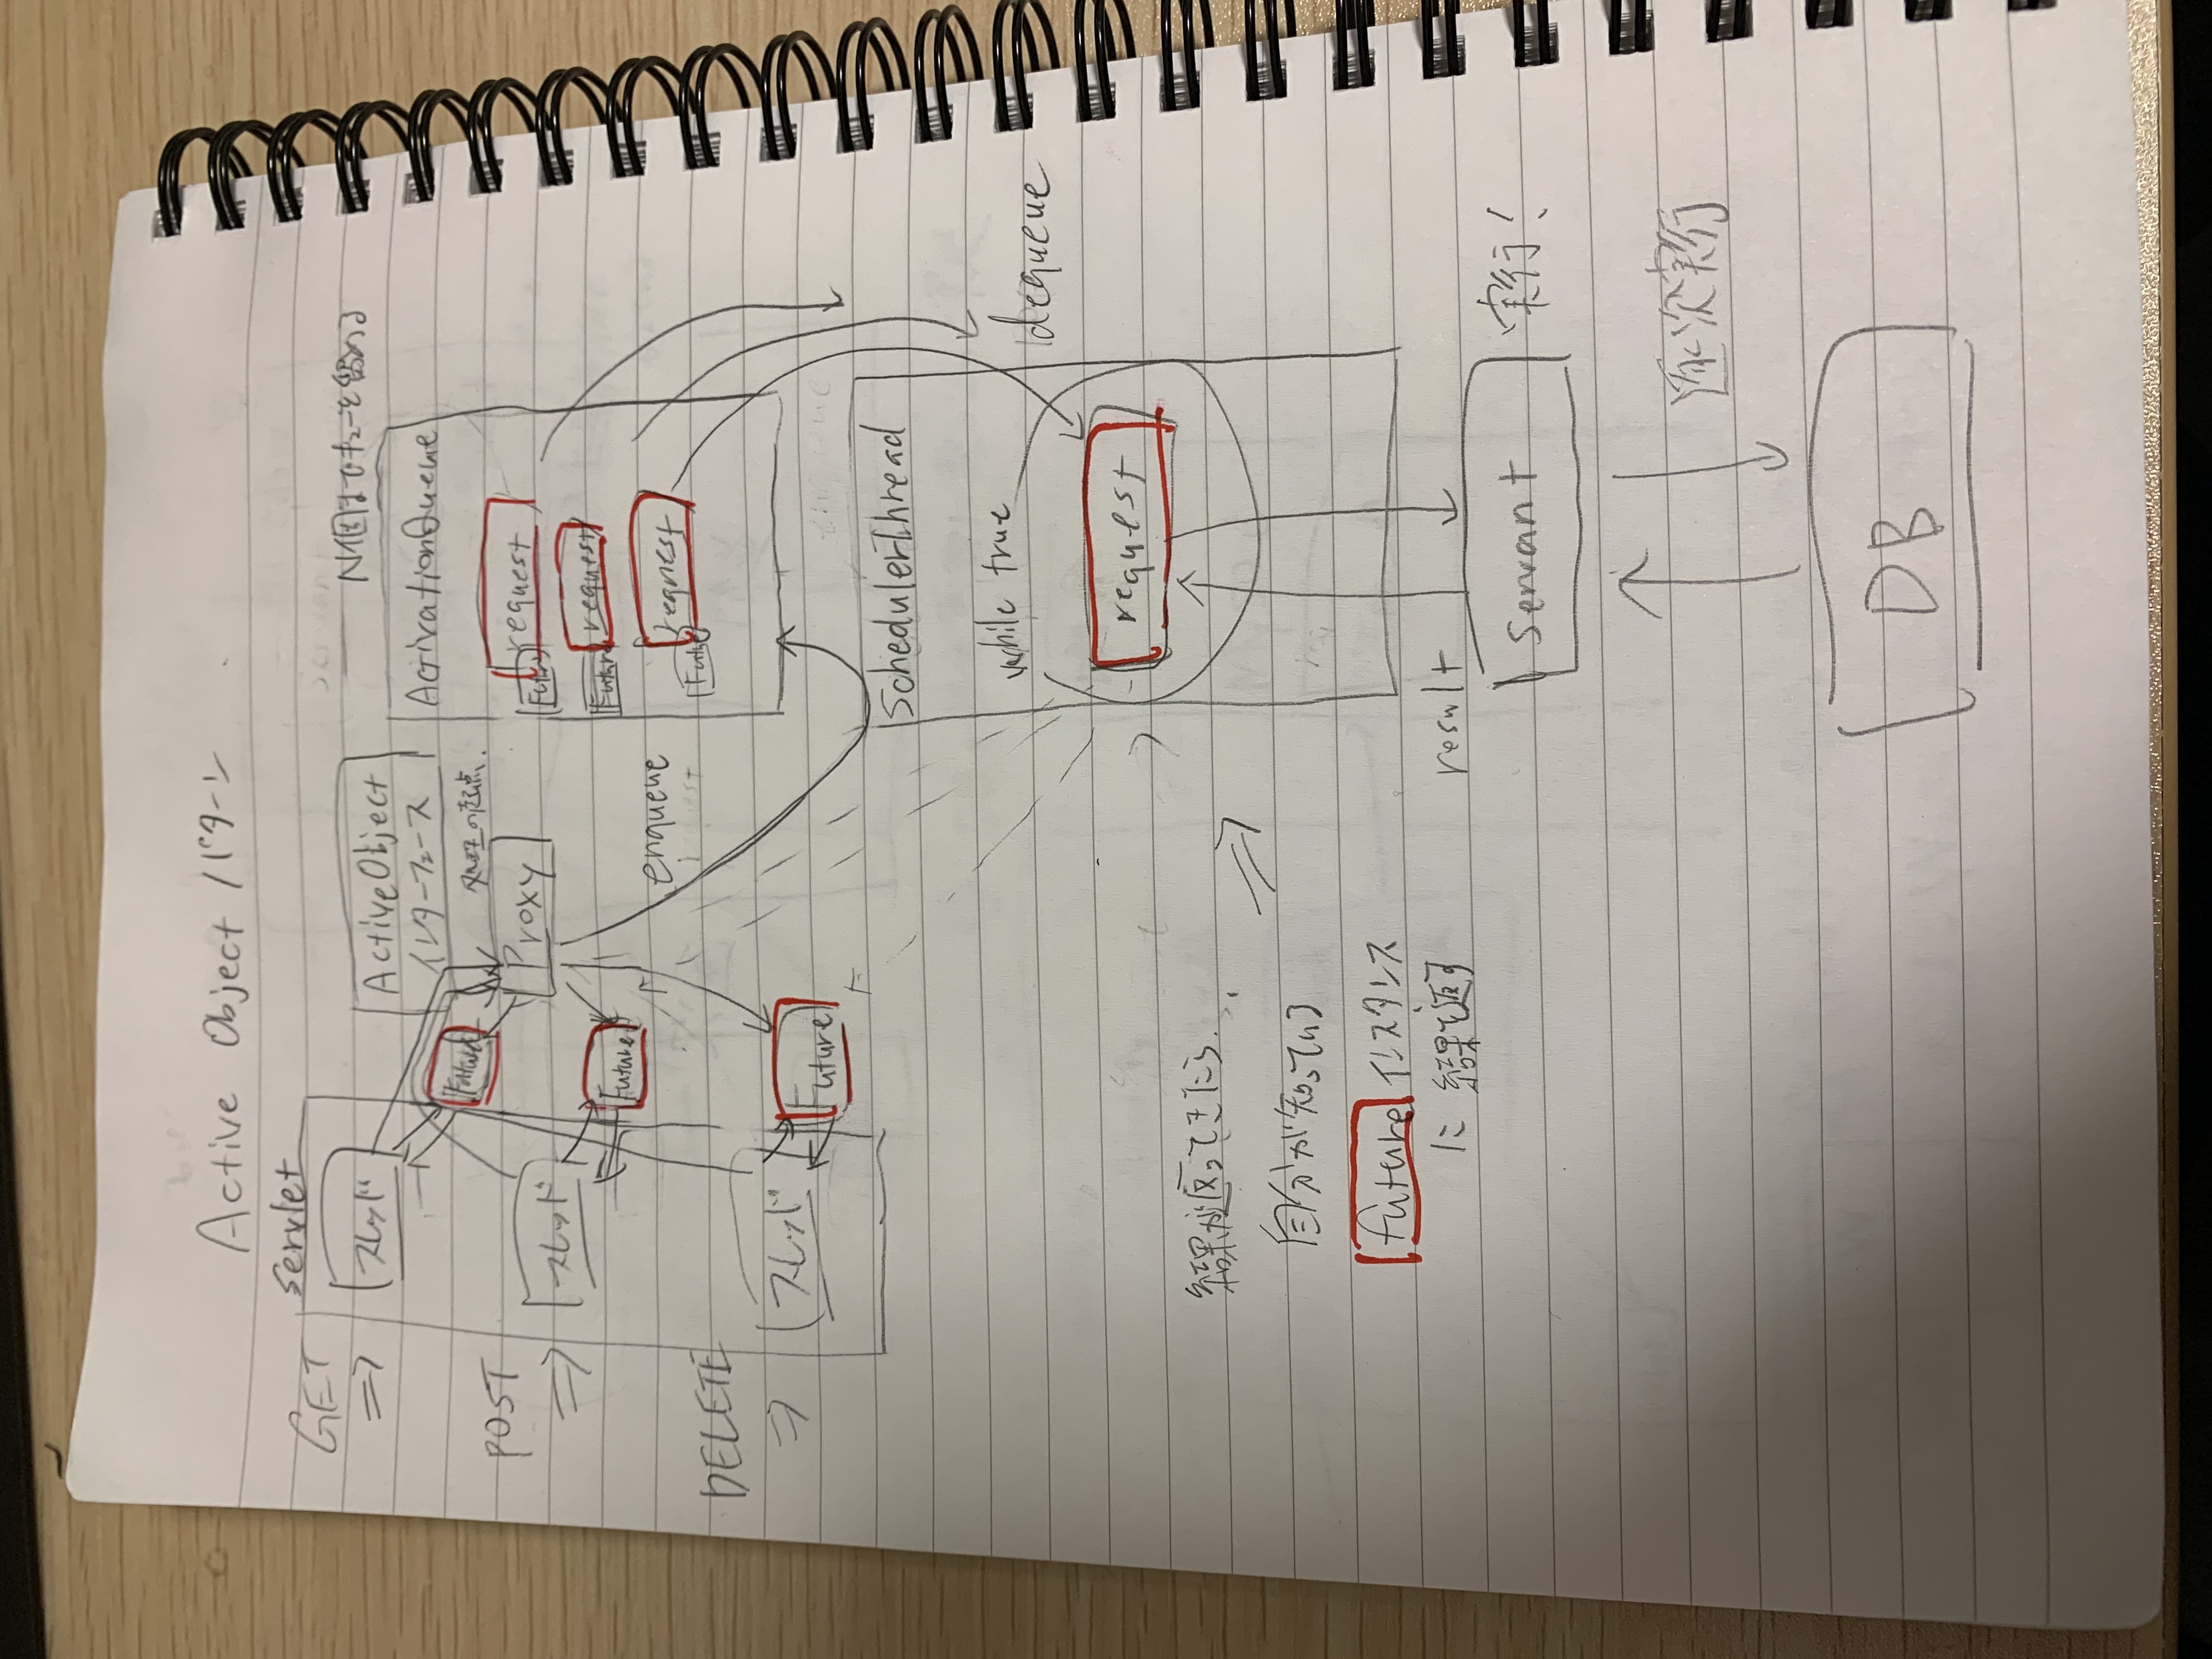 Active Object パターン
servlet
GET
スレッド
POST
スレッド
DELETE
スレッド
Future
Future
Future
ActiveObject
インターフェース
処理の起点.
Proxy
enqueue
N個までキューを留める
ActivationQueue
request
Future
request
Future
request
Future
SchedulerThread
while true
dequeue
request
結果が返ってきたら.
自分が知っている
future インスタンス
に 結果を返す
result
Servant
実行!
逐次実行
DB